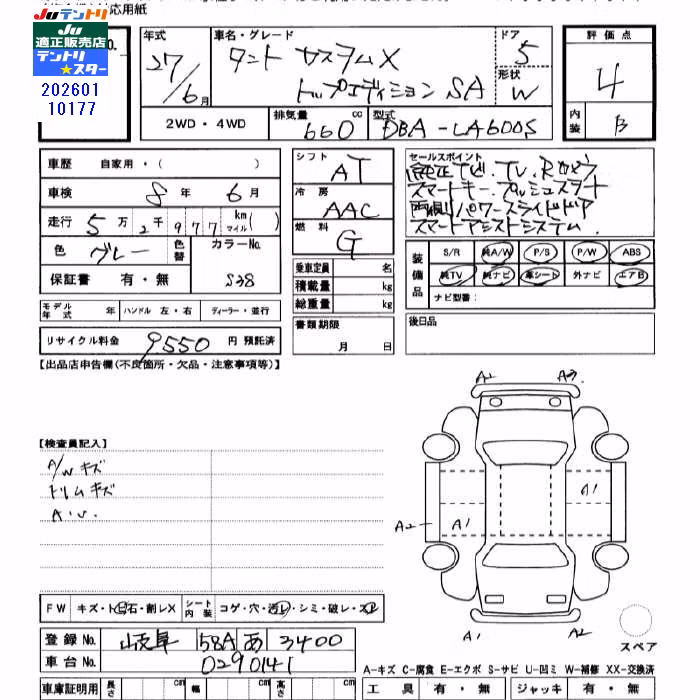 Juテントリ
Ju
適正販売店
テントリ
★スター
202601
10177
応用紙
年式
27/6月
車名・グレード
タント カスタムX
トップエディション SA
ドア
5
形状
W
評価点
4
内装
B
2WD・4WD
排気量
660
cc
型式
DBA-LA600S
車歴 自家用・( )
車検 8年 6月
走行 5万2千977 km マイル( )
色 グレー
色替
カラーNo.
S38
保証書 有・無
モデル年式 年 ハンドル 左・右 ディーラー・並行
リサイクル料金 9550 円 預託済
シフト
AT
冷房
AAC
燃料
G
乗車定員 名
積載量 kg
総重量 kg
書類期限
月 日
セールスポイント
純正ナビ.TV.Rカメラ
スマートキー.プッシュスタート
両側パワースライドドア
スマートアシストシステム
装備品
S/R 純A/W P/S P/W ABS
純TV 純ナビ 革シート 外ナビ エアB
ナビ型番:
後日品
【出品店申告欄(不良箇所・欠品・注意事項等)】
【検査員記入】
A/Wキズ
ドリムキズ
A.U.
A2 A3
A1
A2 A1
A1 A2
スペア
FW キズ・ト石・割レX
シート内装 コゲ・穴・汚レ・シミ・破レ・スレ
登録No. 岐阜 58A あ 3400
車台No. 0290141
車庫証明用 長さ cm 幅 cm 高さ cm
A-キズ C-腐食 E-エクボ S-サビ U-凹ミ W-補修 XX-交換済
工具 有・無 ジャッキ 有・無